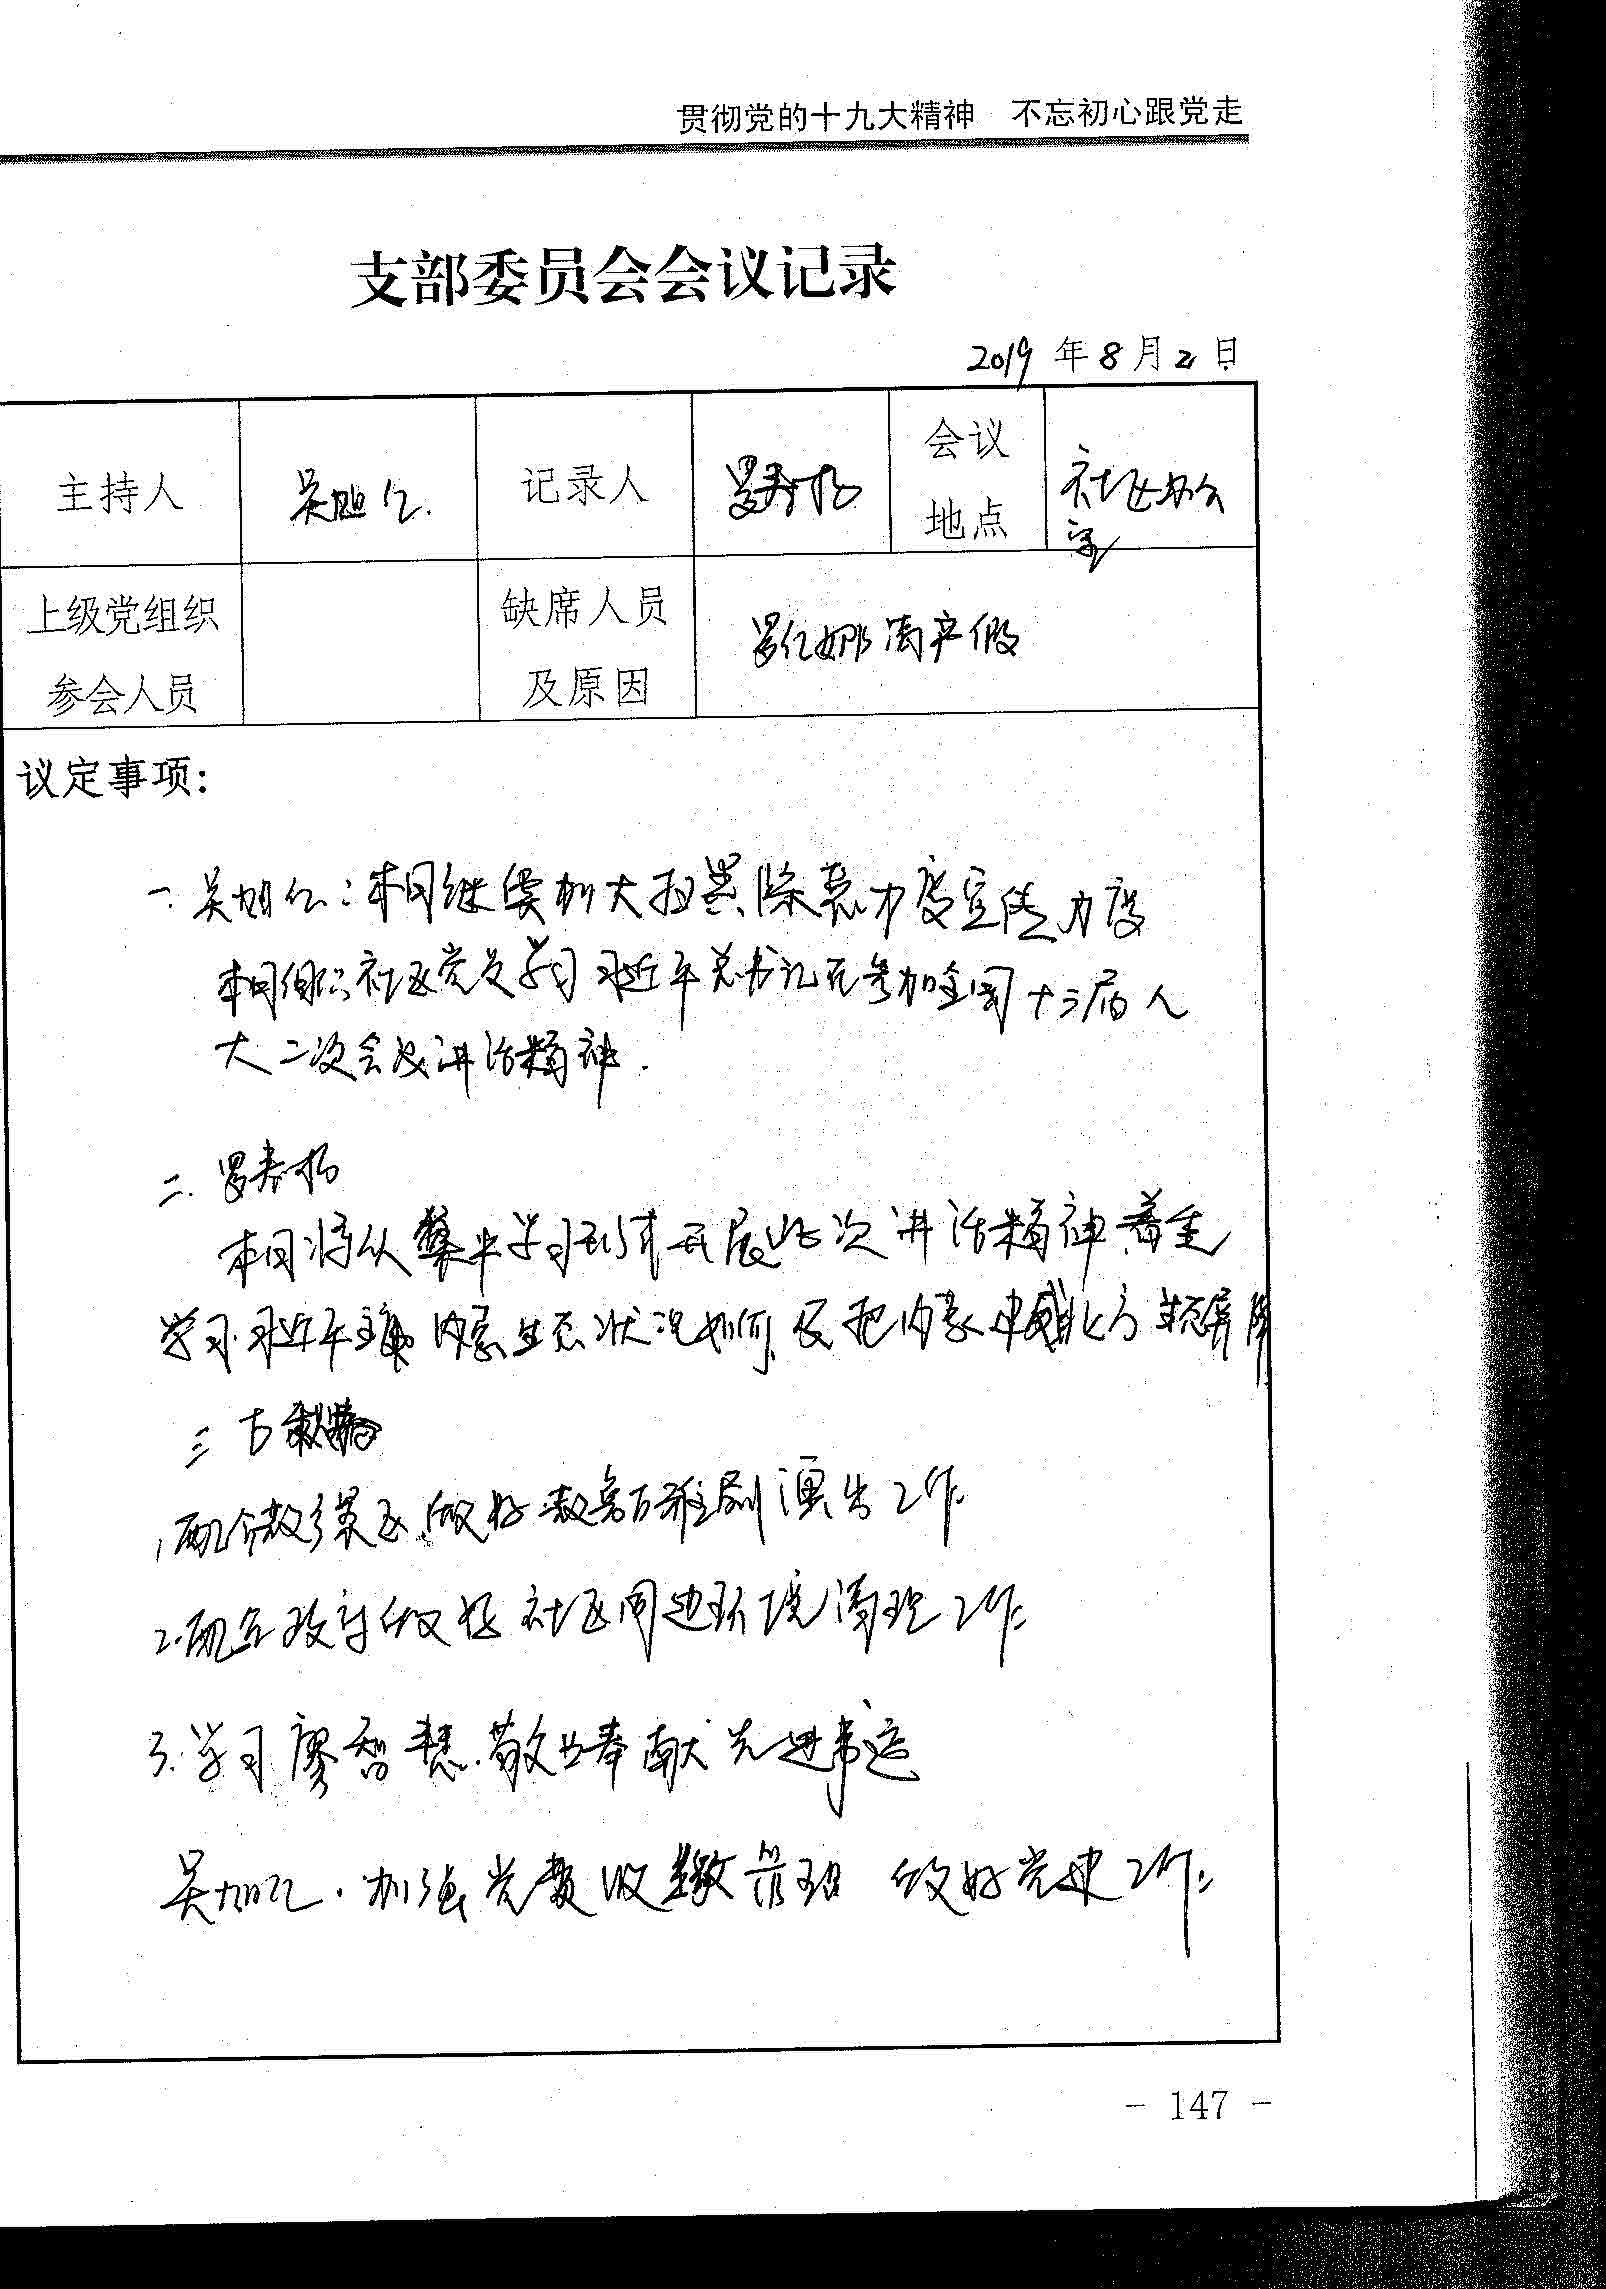 贯彻党的十九大精神 不忘初心跟党走
支部委员会会议记录
2019 年 8 月 2 日
主持人
吴旭仁
记录人
会议
地点
社区办公
室
上级党组织
参会人员
缺席人员
及原因
产假
议定事项:
一. 吴旭仁:本月继续加大扫黑除恶力度宣传力度
本月组织社区党员学习习近平总书记在参加全国十三届人
大二次会议讲话精神.
二.
本月将从集中学习形式开展此次讲话精神着重
学习习近平 内蒙生态状况如何,及把内蒙 北方 屏障
三
1, 景区做好 剧演出工作.
2.配合政府做好社区周边环境清理工作.
3.学习廖智慧.敬业奉献先进事迹
吴旭仁.加强党费收缴管理 做好党建工作.
- 147 -